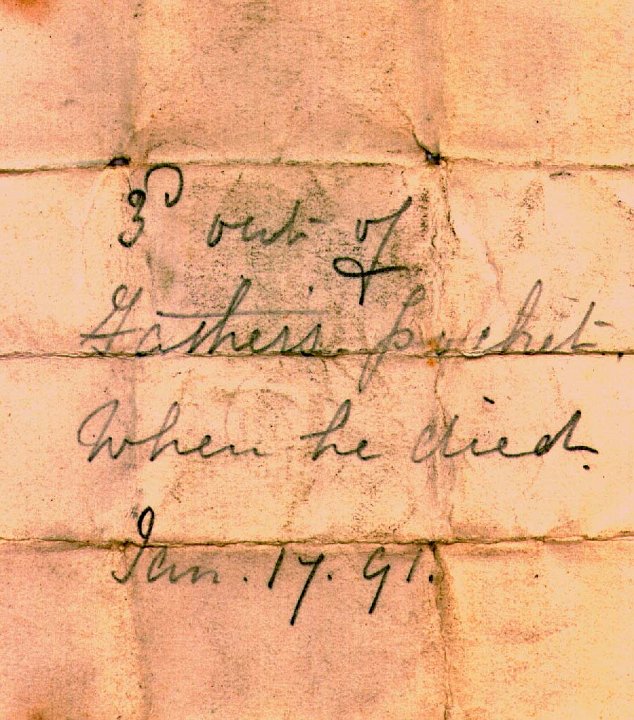 3ᵈ out of
Father's pocket
When he died.
Jan. 17. 91.